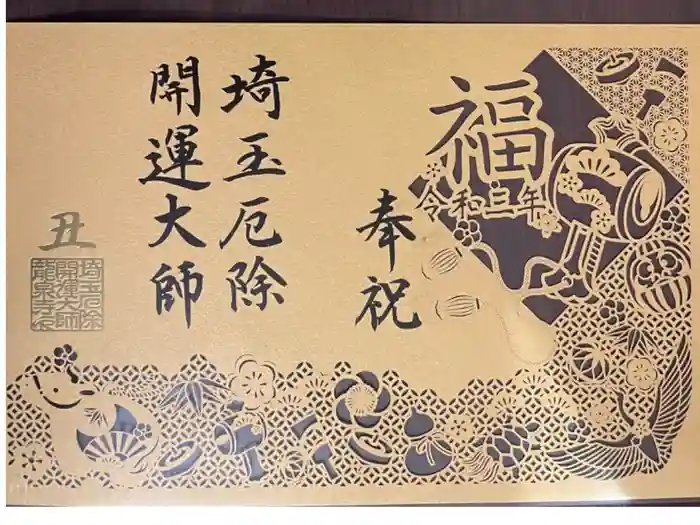 福
令和三年
奉祝
埼玉厄除
開運大師
丑
埼玉厄除
開運大師
龍泉寺